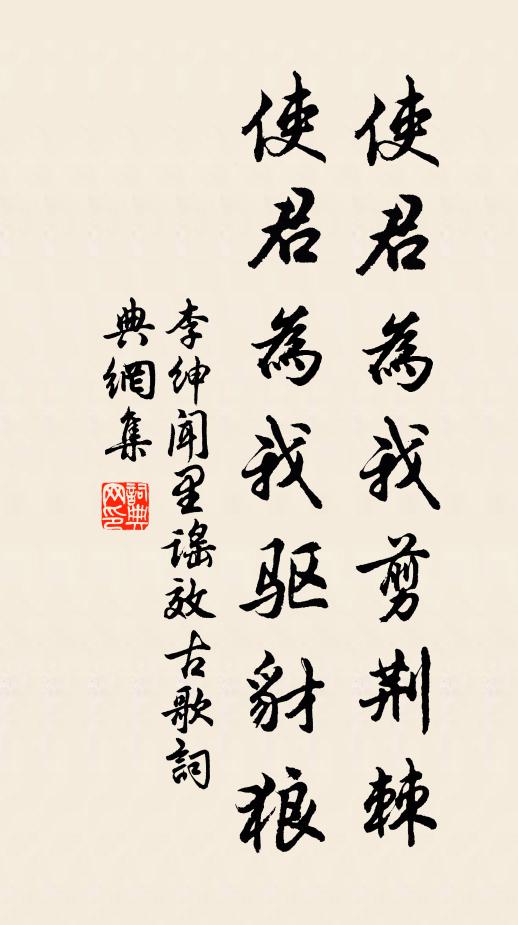 使君為我剪荆棘
使君為我驱豺狼
李紳闻里謠效古歌詞
典網集
詞典网印